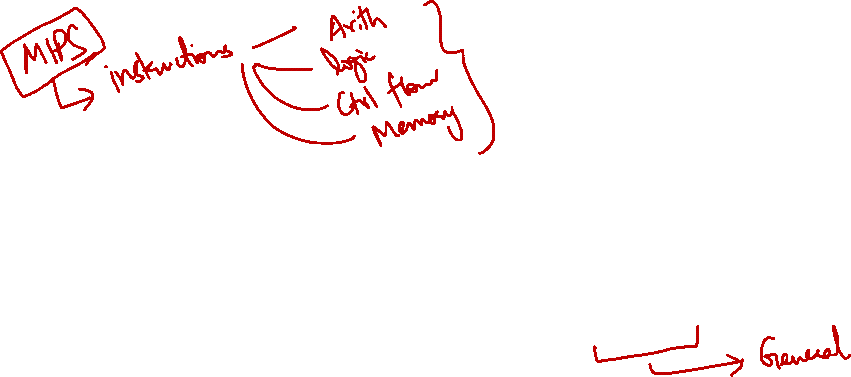 MIPS
instructions
Arith
Logic
Ctrl flow
Memory
General